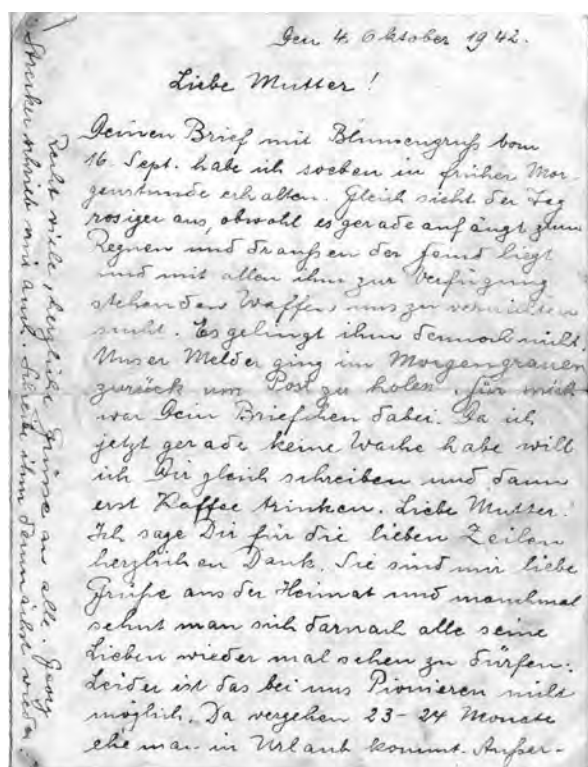 Den 4. Oktober 1942.
Liebe Mutter!
Deinen Brief mit Blumengruß vom
16. Sept. habe ich soeben in früher Mor-
genstunde erhalten. Gleich sieht der Tag
rosiger aus, obwohl es gerade anfängt zum
Regnen und draußen der Feind liegt
und mit allen ihm zur Verfügung
stehenden Waffen uns zu vernichten
sucht. Es gelingt ihm dennoch nicht.
Unser Melder ging im Morgengrauen
zurück um Post zu holen. Für mich
war Dein Briefchen dabei. Da ich
jetzt gerade keine Wache habe will
ich Dir gleich schreiben und dann
erst Kaffee trinken. Liebe Mutter!
Ich sage Dir für die lieben Zeilen
herzlichen Dank. Sie sind mir liebe
Grüße aus der Heimat und manchmal
sehnt man sich darnach alle seine
Lieben wieder mal sehen zu dürfen.
Leider ist das bei uns Pionieren nicht
möglich. Da vergehen 23-24 Monate
ehe man in Urlaub kommt. Außer-
Recht viele, herzliche Grüsse an alle. Georg
schrieb mir auch. Schreibe ihm dann wieder.